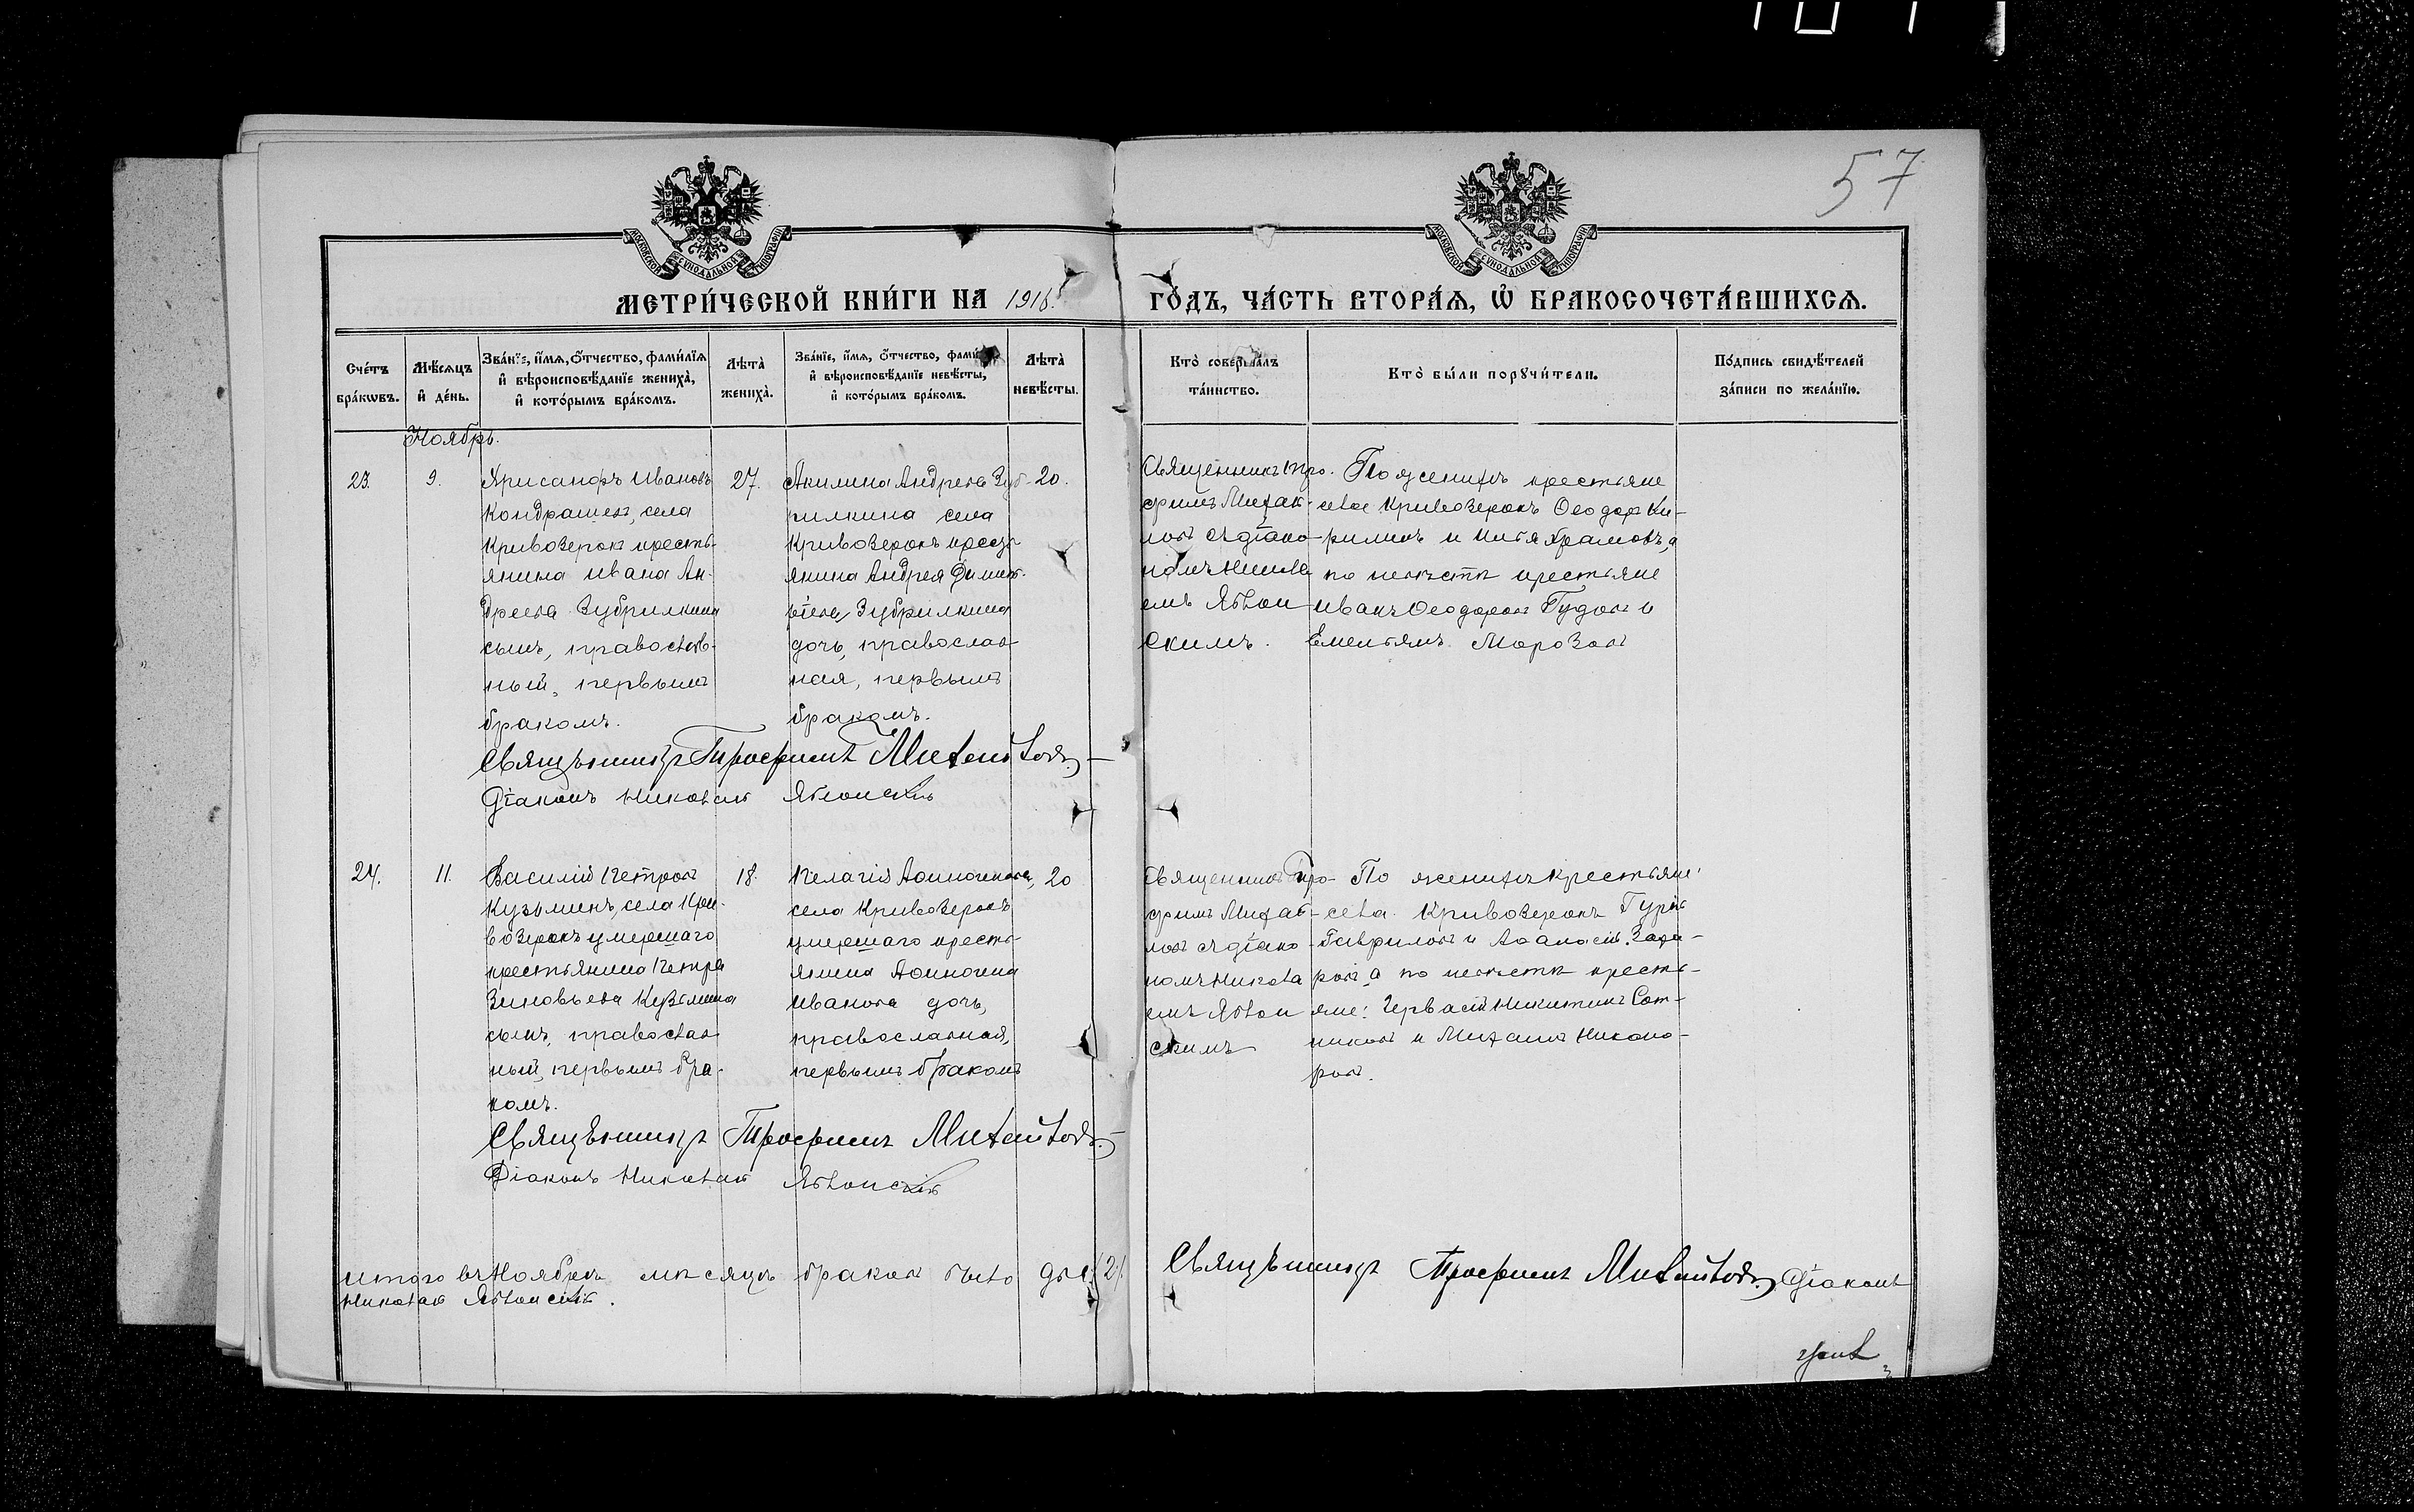 57
МОСКОВСКОЙ СУНОДАЛЬНОЙ ТИПОГРАФІИ
МОСКОВСКОЙ СУНОДАЛЬНОЙ ТИПОГРАФІИ
МЕТРИ́ЧЕСКОЙ КНИ́ГИ НА 1918
ГО́ДЪ, ЧА́СТЬ ВТОРА́Ѧ, Ѽ БРАКОСОЧЕТА́ВШИХСѦ.
Сче́тъ бра́кѡвъ.
Мѣ́сѧцъ и҆ де́нь.
Зва́нїе, и҆́мѧ, ѻ҆́тчество, фами́лїѧ
и҆ вѣроисповѣ́данїе жениха̀,
и҆ кото́рымъ бра́комъ.
Лѣта̀ жениха̀.
Зва́нїе, и҆́мѧ, ѻ҆́тчество,
и҆ вѣроисповѣ́данїе невѣ́сты,
и҆ кото́рымъ бра́комъ.
Лѣта̀ невѣ́сты.
Кто̀ соверша́лъ
та́инство.
Кто̀ бы́ли порꙋчи́тели.
По́дпись свидѣ́телей
за́писи по жела́нїю.
Ноябрь.
23.
9.
Хрисанфъ Ивановъ
Кондрашевъ, села
Кривозерокъ кресть-
янина Ивана Ан-
дреева Зубрилкина
сынъ, православ-
ный, первымъ
бракомъ.
27.
Акилина Андреева Зуб-
рилкина села
Кривозерокъ крестья-
янина Андрея
Зубрилкина
дочь, православ-
ная, первымъ
бракомъ.
20.
Священникъ Тро-
фимъ Михай-
ловъ съ діако-
номъ Никола-
емъ Яблон-
скимъ.
По женихѣ крестьяне
села Кривозерокъ Ѳеодоръ Ки-
риликъ и Илья Храмовъ, а
по невѣстѣ крестьяне
Иванъ Ѳеодоровъ Гудовъ и
Емельянъ Морозовъ
Священникъ Трофимъ Михайловъ.
Діаконъ Николай Яблонскій
24.
11.
Василій Петровъ
Кузьминъ, села Кри-
возерокъ умершаго
крестьянина Петра
Зиновьева Кузьмина
сынъ, православ-
ный, первымъ бра-
комъ.
18.
Пелагія Аѳиногенова,
села Кривозерокъ
умершаго кресть-
янина Аѳиногена
Иванова дочь,
православная,
первымъ бракомъ
20
Священникъ Тро-
фимъ Михай-
ловъ съ діако-
номъ Никола
емъ Яблон
скимъ
По женихѣ крестьяне
села Кривозерокъ Гурій
Гавриловъ и Аѳанасій Заха-
ровъ, а по невѣстѣ кресть-
яне: Гервасій Никитинъ Сот-
никовъ и Михаилъ Никоно-
ровъ.
Священникъ Трофимъ Михайловъ.
Діаконъ Николай Яблонскій
Итого въ Ноябрѣ мѣсяцѣ браковъ было два (2).
Священникъ Трофимъ Михайловъ. Діаконъ
Николай Яблонскій.